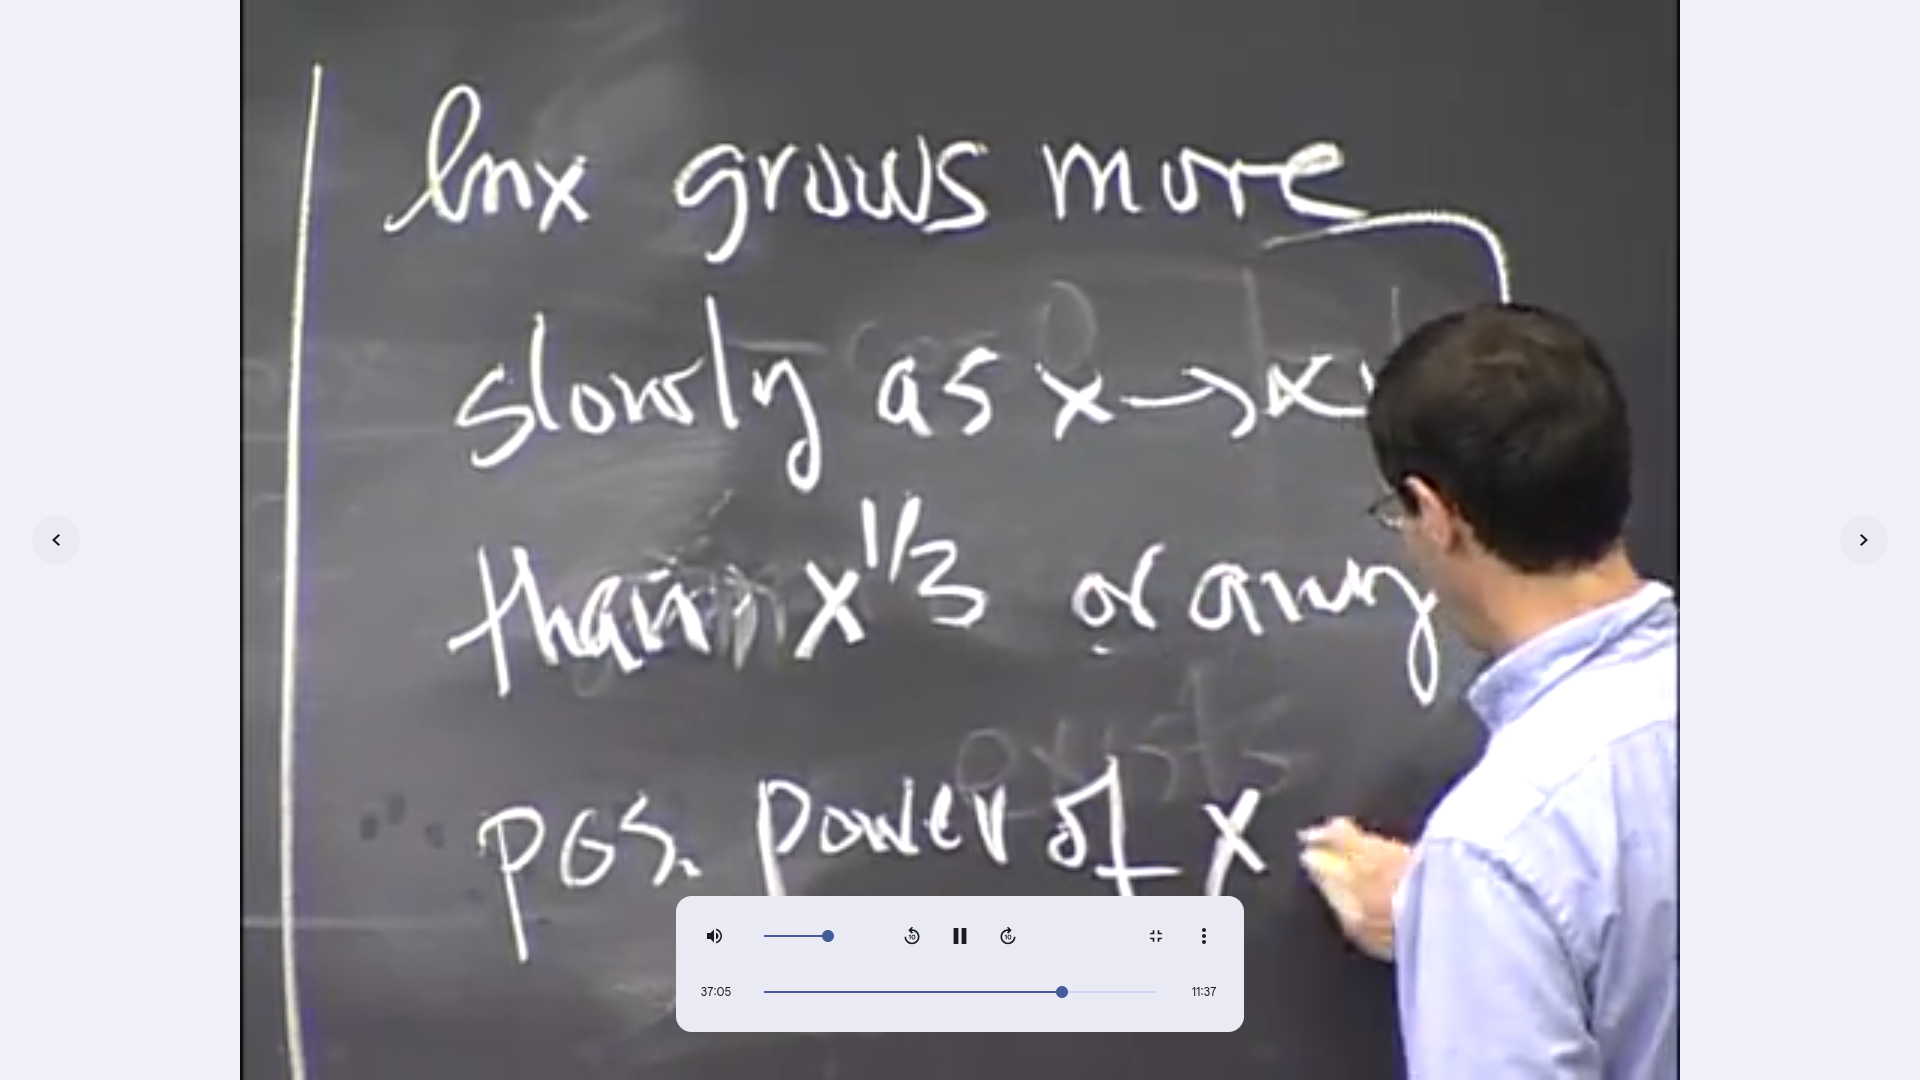 lnx grows more
slowly as x→∞
than x^1/3 or any
pos. power of x
exists
10
10
37:05
11:37